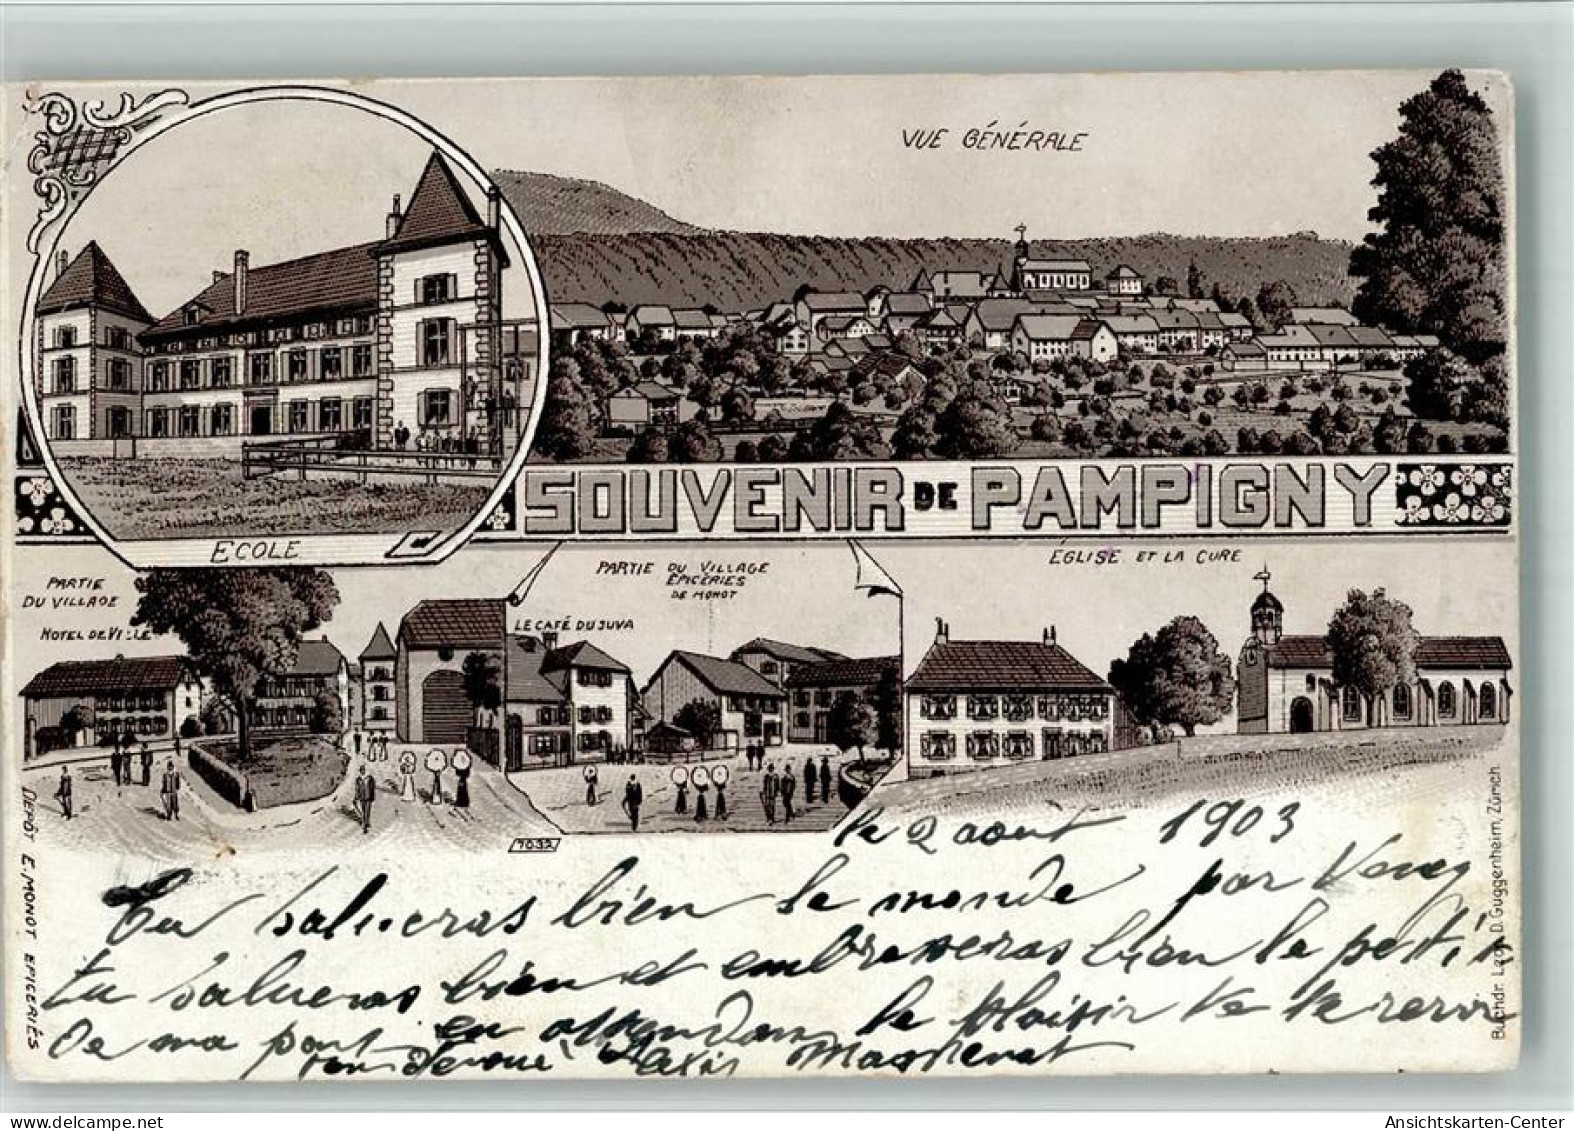 VUE GÉNÉRALE
ECOLE
SOUVENIR DE PAMPIGNY
PARTIE
DU VILLAGE
HOTEL DE VILLE
LE CAFÉ DU JUVA
PARTIE DU VILLAGE
ÉPICÉRIES
DE MONOT
ÉGLISE ET LA CURE
7032
DÉPÔT E. MONOT EPICERIÉS
Buchdr. Leop. D. Guggenheim, Zürich.
le 2 aout 1903
Tu salueras bien le monde par
tu salueras bien et embrasseras bien le petit
de ma part en attendam le plaisir de te revoir
ton devoué Alexis
Ansichtskarten-Center